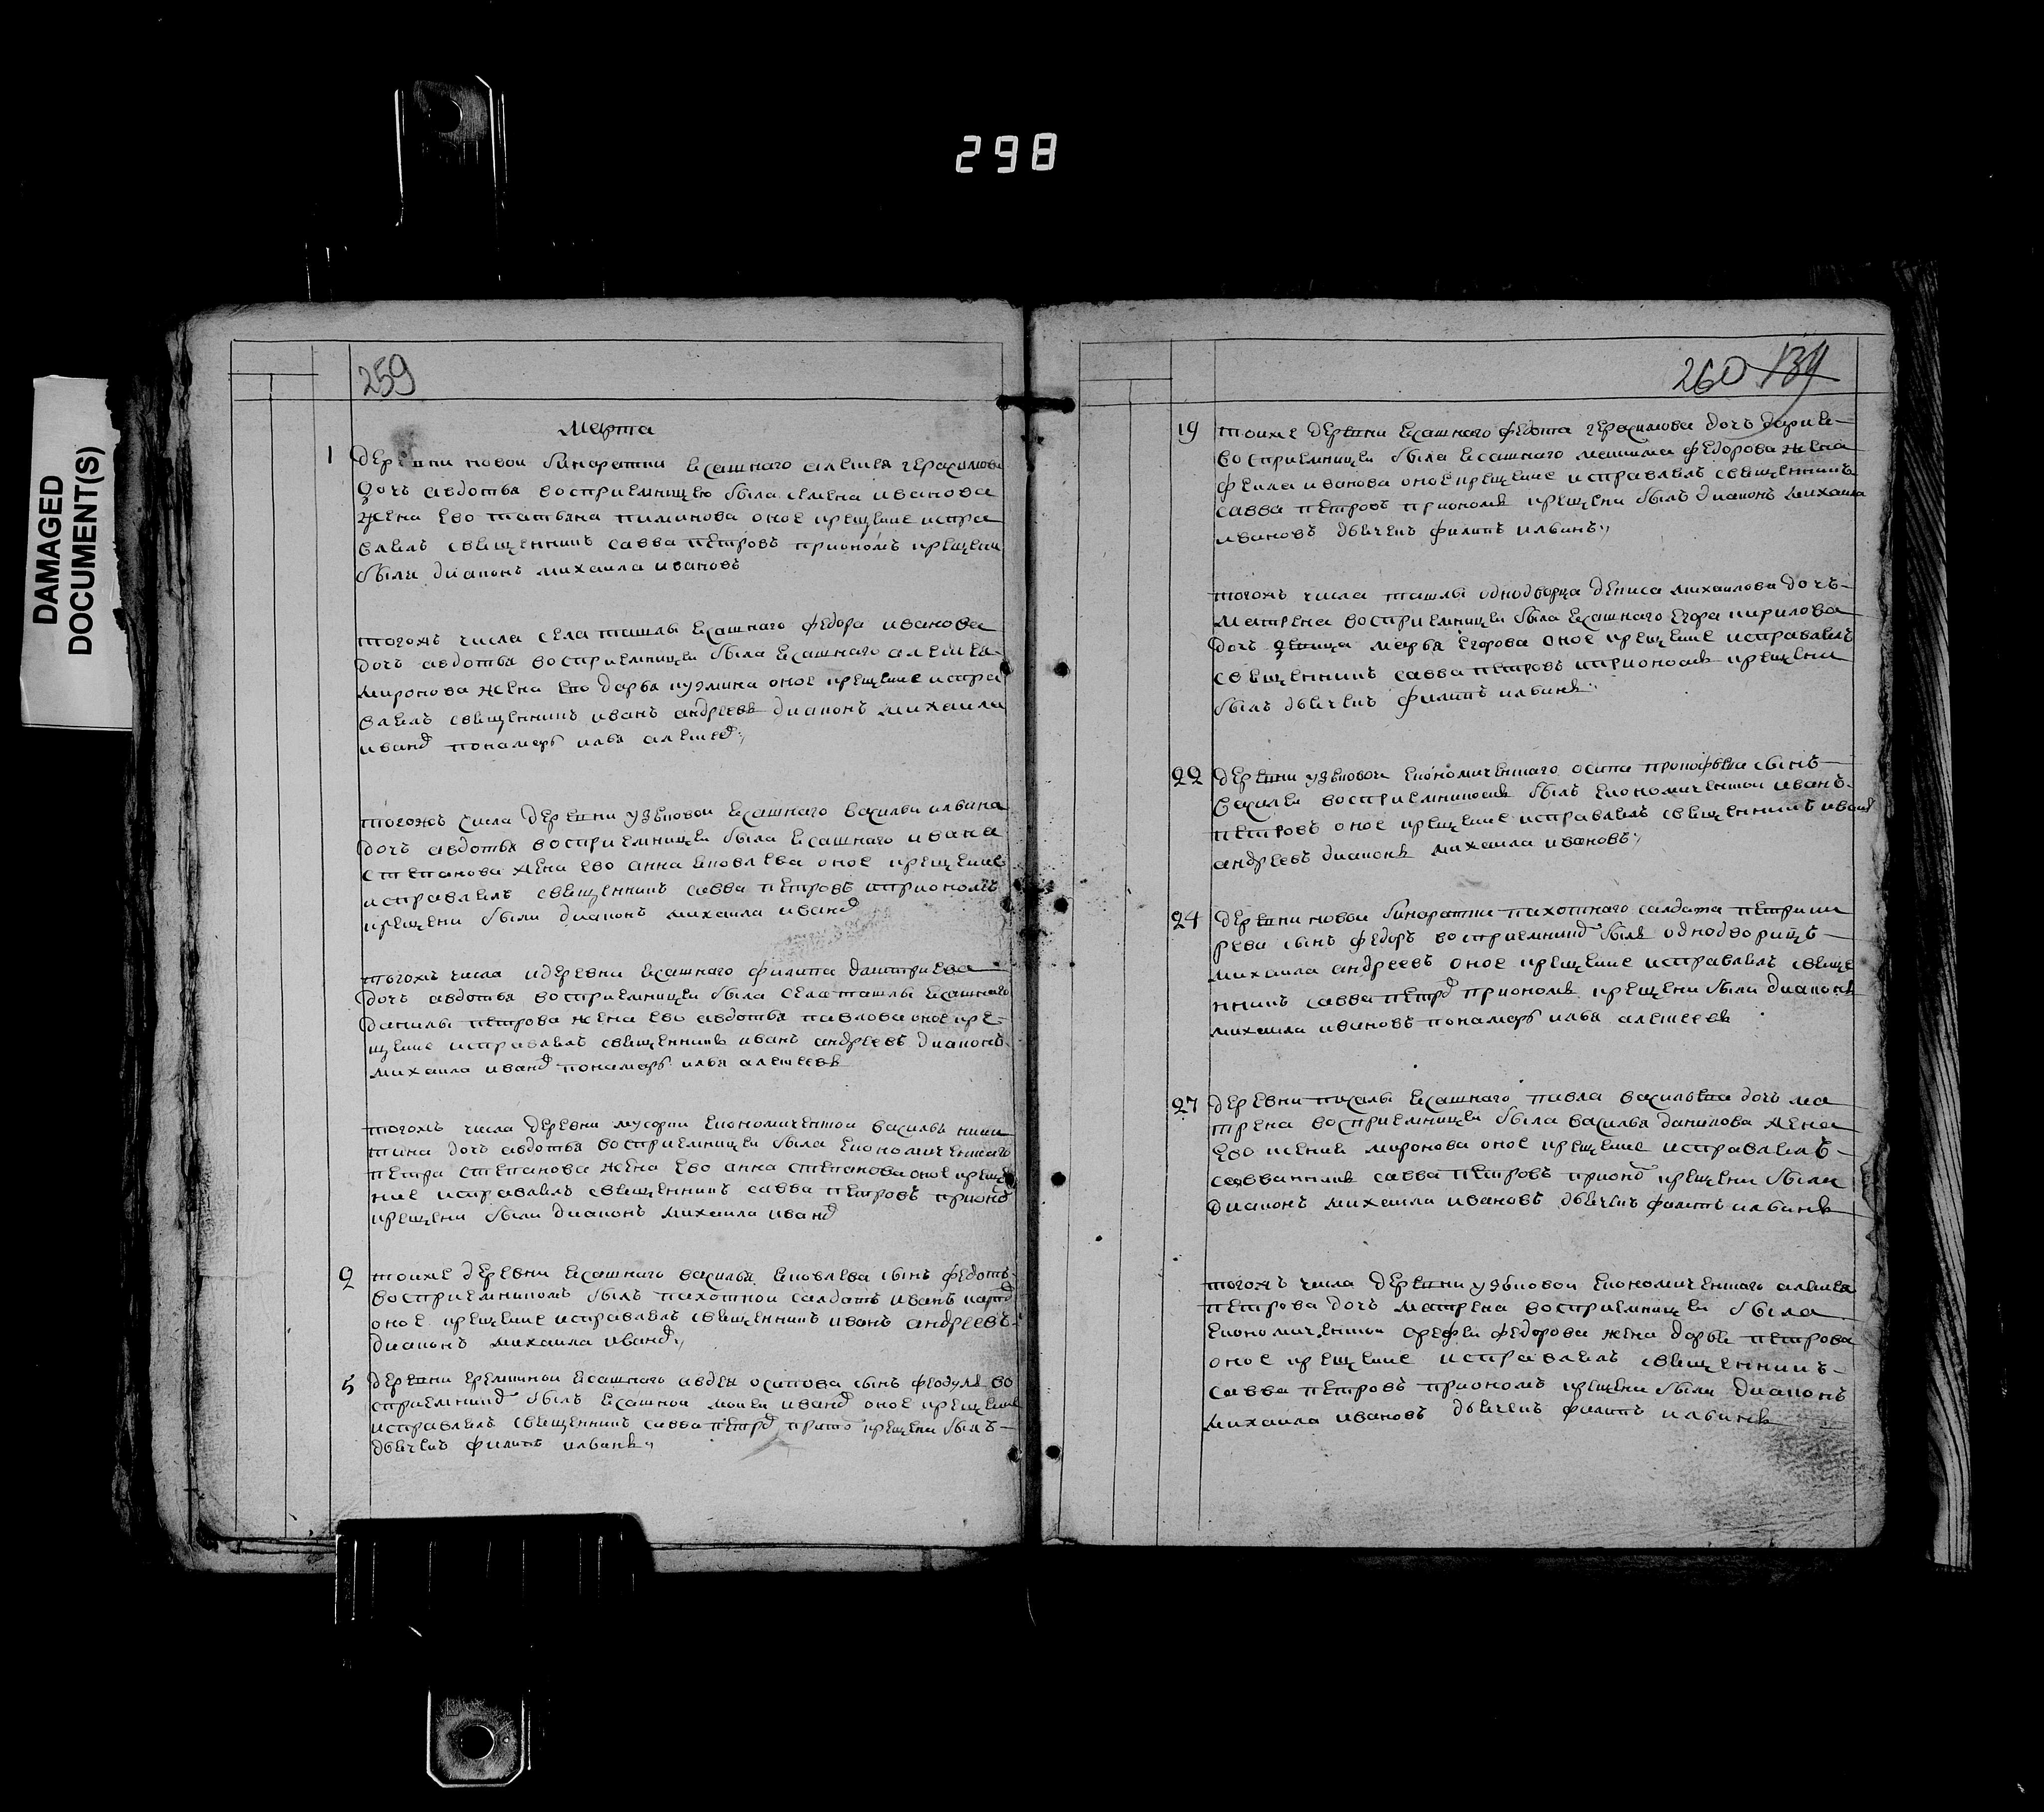 DAMAGED
DOCUMENT(S)
298
259
марта
1 деревни новои бинаратки ясашнаго алеѯея герасимова
дочь авдотья восприемницею была семена иванова
жена ево татьяна пиминова оное крещение испра
влялъ священникъ савва петровъ приономъ крещени
были диаконъ михаила ивановъ
тогожъ числа села ташлы ясашнаго федора иванова
дочь авдотья восприемницеи была ясашнаго алеѯея
миронова жена ево дарья кузмина оное крещение испра
влялъ священникъ иванъ андреевъ диаконъ михаила
иванов пономарь илья алеѯеев
тогожъ числа деревни узюковои ясашнаго василья ильина
дочь авдотья восприемницеи была ясашнаго ивана
степанова жена ево анна яковлева оное крещение
исправлялъ священникъ савва петровъ приономъ
крещени были диаконъ михаила иванов
тогожъ числа идеревни ясашнаго филипа дмитриева
дочь авдотья восприемницеи была села ташлы ясашнаго
данилы петрова жена ево авдотья павлова оное кре
щение исправлялъ священникъ иванъ андреевъ диаконъ
михаила иванов пономарь илья алеѯеевъ
тогожъ числа деревни мусорки економическои василья ники
тина дочь авдотья восприемницеи была економическаго
петра степанова жена ево анна степанова оное креще
ние исправлялъ священникъ савва петровъ прионом
крещени были диаконъ михаила иванов
2 тоиже деревни ясашнаго василья яковлева сынъ федотъ
восприемникомъ былъ пахотнои салдатъ иванъ
оное крещение исправлялъ священникъ иванъ андреевъ
диаконъ михаила иванов
5 деревни еремкинои ясашнаго авдея осипова сынъ феодулъ во
сприемником былъ ясашнои иванов оное крещение
исправлялъ священникъ савва петров притом крещени былъ
дьячекъ филипъ ильинъ
260 134
19 тоиже деревни ясашнаго федота герасимова дочь дария
восприемницеи была ясашнаго маѯима федорова жена
фекла иванова оное крещение исправлялъ священникъ
савва петровъ приономъ крещени былъ диаконъ михаила
ивановъ дьячекъ филипъ ильинъ
тогожъ числа ташлы однодворца дениса михаилова дочь
матрена восприемницеи была ясашнаго егора кирилова
дочь девица марья егорова оное крещение исправлялъ
священникъ савва петровъ иприономъ крещени
былъ дьячекъ филипъ ильинъ
22 деревни узюковои економическаго осипа прокофьева сынъ
василеи восприемникомъ былъ економическои иванъ
петровъ оное крещение исправлялъ священникъ иванъ
андреевъ диаконъ михаила ивановъ
24 деревни новои бинаратки пахотнаго салдата петра ки
рева сынъ федоръ восприемником былъ однодворицъ
михаила андреевъ оное крещение исправлялъ свяще
нникъ савва петров приономъ крещени были диаконъ
михаила ивановъ пономарь илья алеѯеевъ
27 деревни пискалы ясашнаго павла васильева дочь ма
трена восприемницеи была василья данилова жена
ево ксения миронова оное крещение исправлялъ
савва петровъ прионом крещени были
диаконъ михаила ивановъ дьячекъ филипъ ильинъ
тогожъ числа деревни узюковои економическаго алеѯея
петрова дочь матрена восприемницеи была
економическои арефеи федорова жена дарья петрова
оное крещение исправлялъ священникъ
савва петровъ приономъ крещени были диаконъ
михаила ивановъ дьячекъ филипъ ильинъ